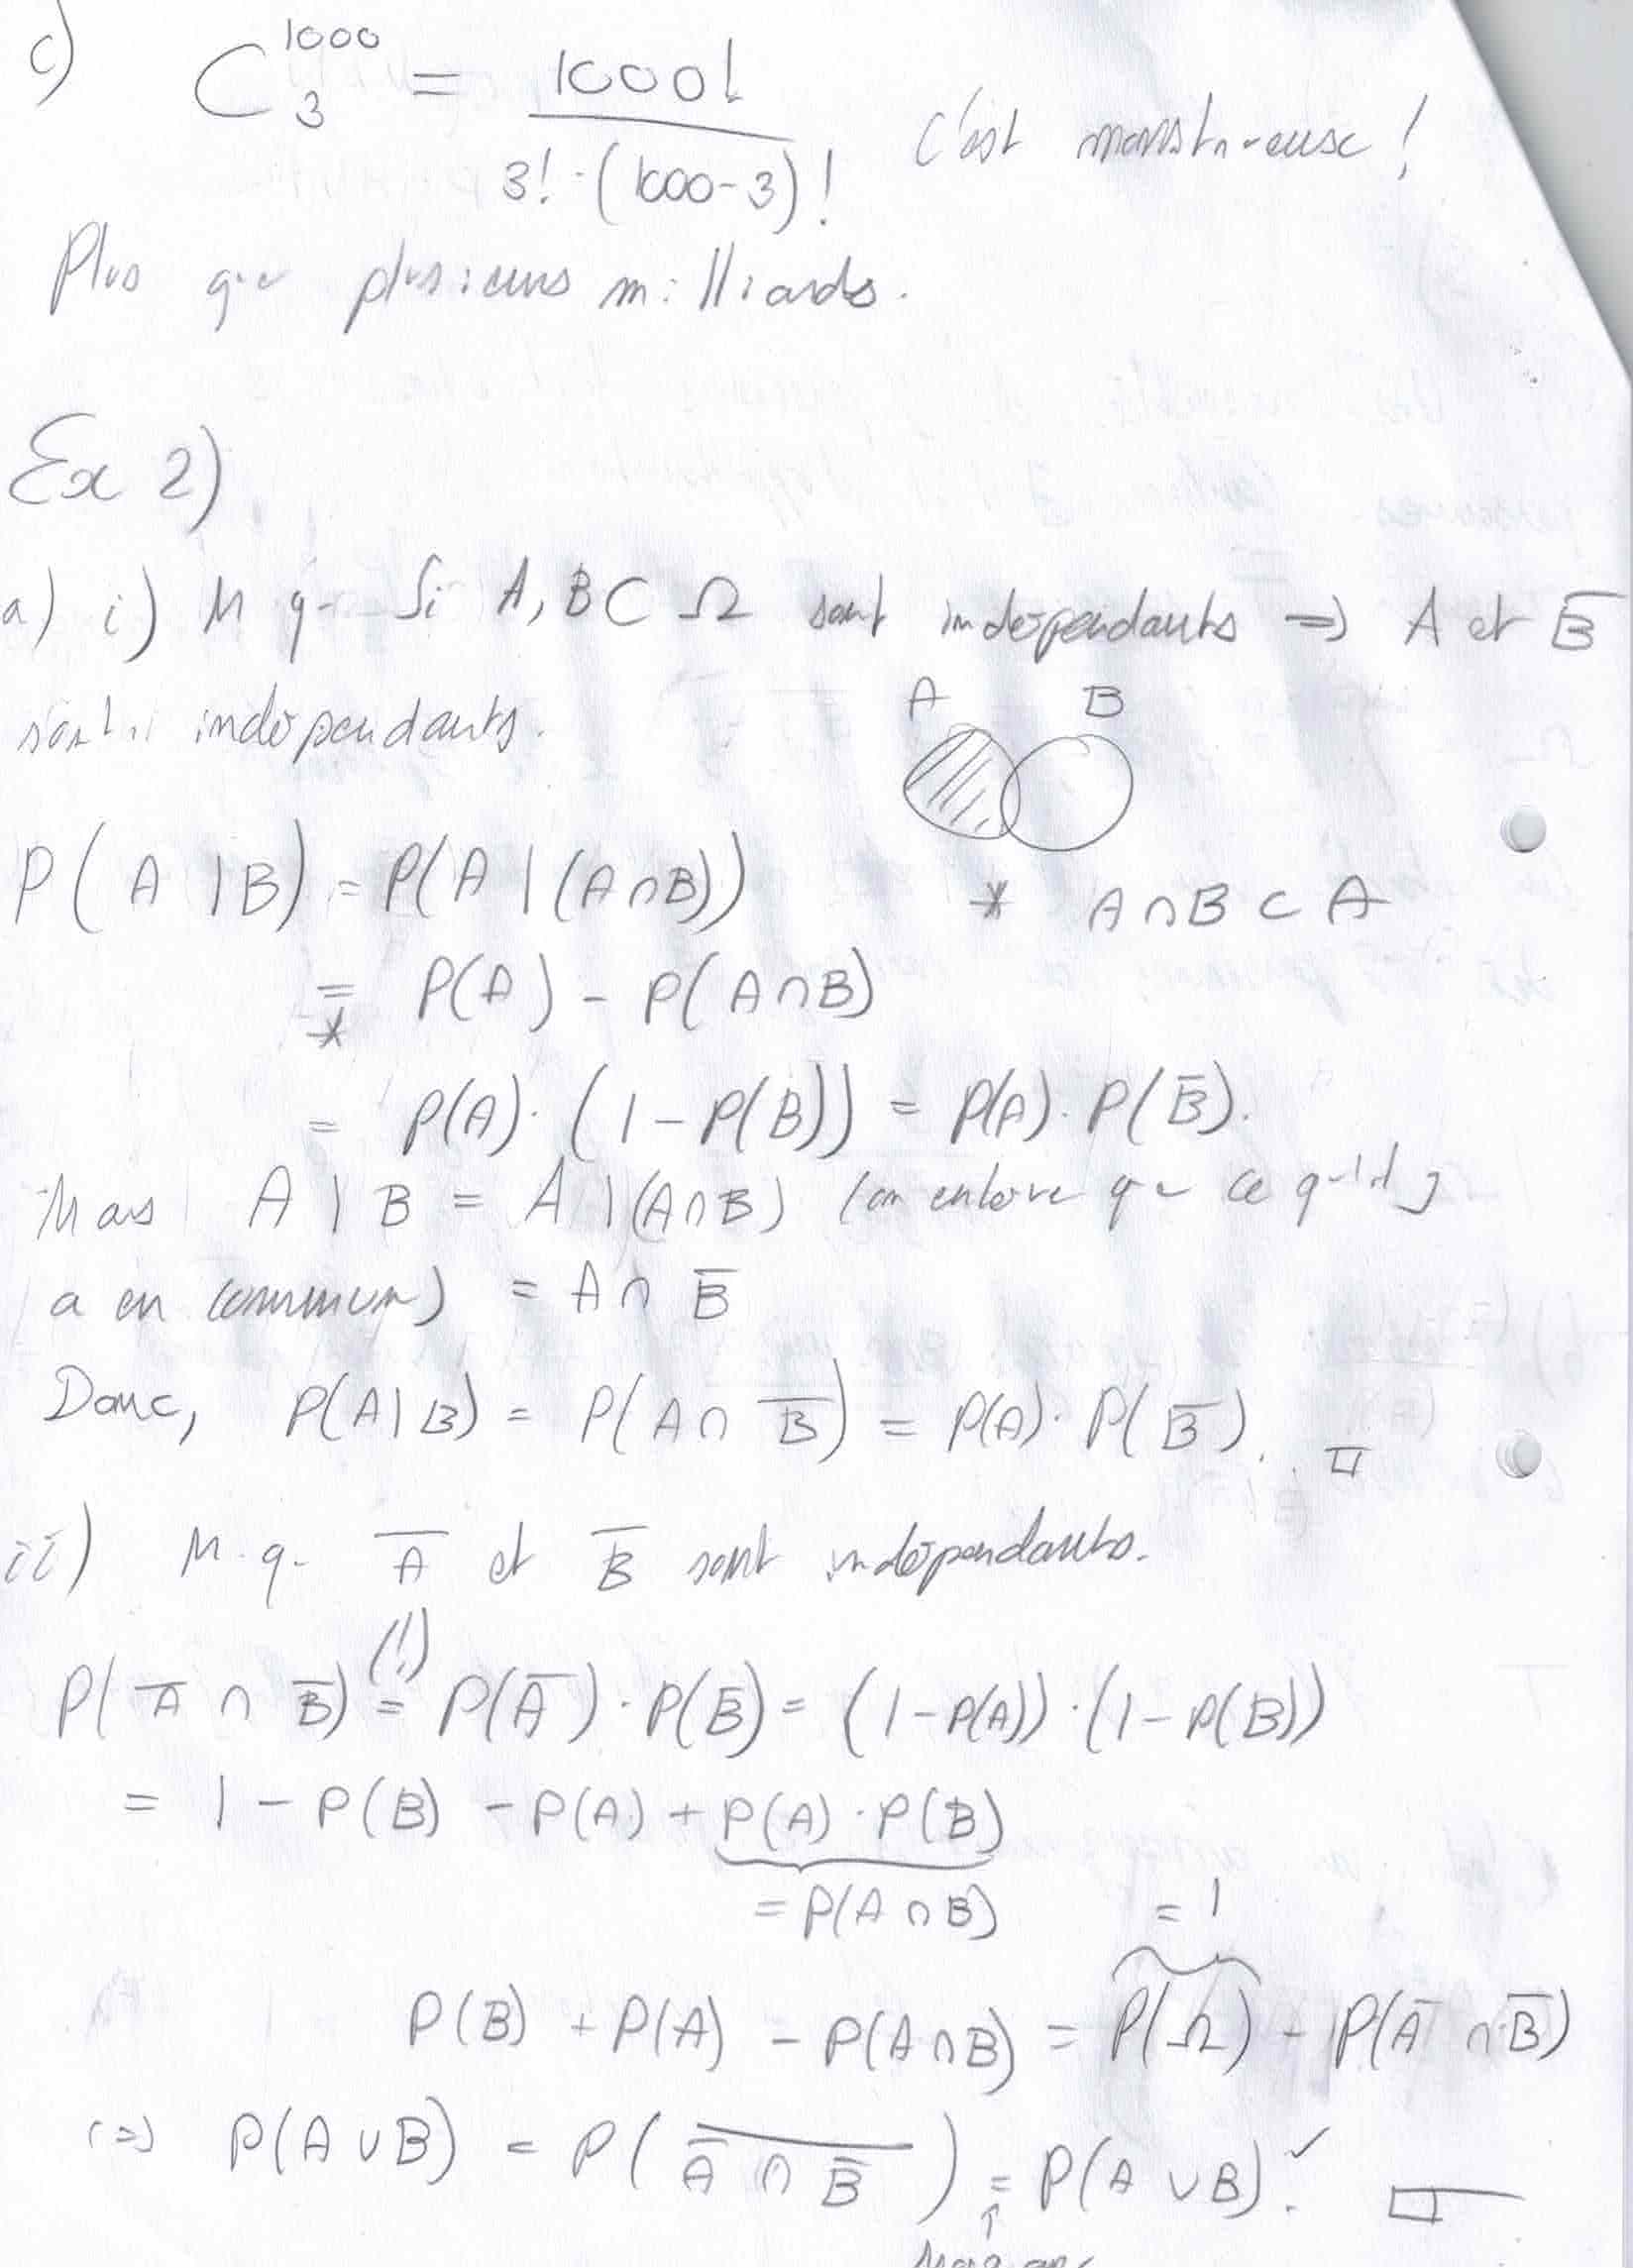 c) C_3^1000 = 1000! / (3! · (1000-3)!) C'est monstreuse !
Plus que plusieurs milliards.
Ex 2)
a) i) M q. Si A, B ⊂ Ω sont indépendants => A et B̅
sont indépendants.
A B
P( A \ B) = P(A \ (A ∩ B))
* A ∩ B ⊂ A
=* P(A) - P(A ∩ B)
= P(A) · (1 - P(B)) = P(A) · P(B̅).
Mais A \ B = A \ (A ∩ B) (on enlève que ce qu'il y
a en commun) = A ∩ B̅
Donc, P(A \ B) = P(A ∩ B̅) = P(A) · P(B̅). □
ii) M. q. A̅ et B̅ sont indépendants.
P( A̅ ∩ B̅) =(!) P(A̅) · P(B̅) = (1 - P(A)) · (1 - P(B))
= 1 - P(B) - P(A) + P(A) · P(B)
= P(A ∩ B) = 1
P(B) + P(A) - P(A ∩ B) = P(Ω) - P(A̅ ∩ B̅)
(=>) P(A ∪ B) = P( \overline{A̅ ∩ B̅} ) = P(A ∪ B). ✓ □
↑